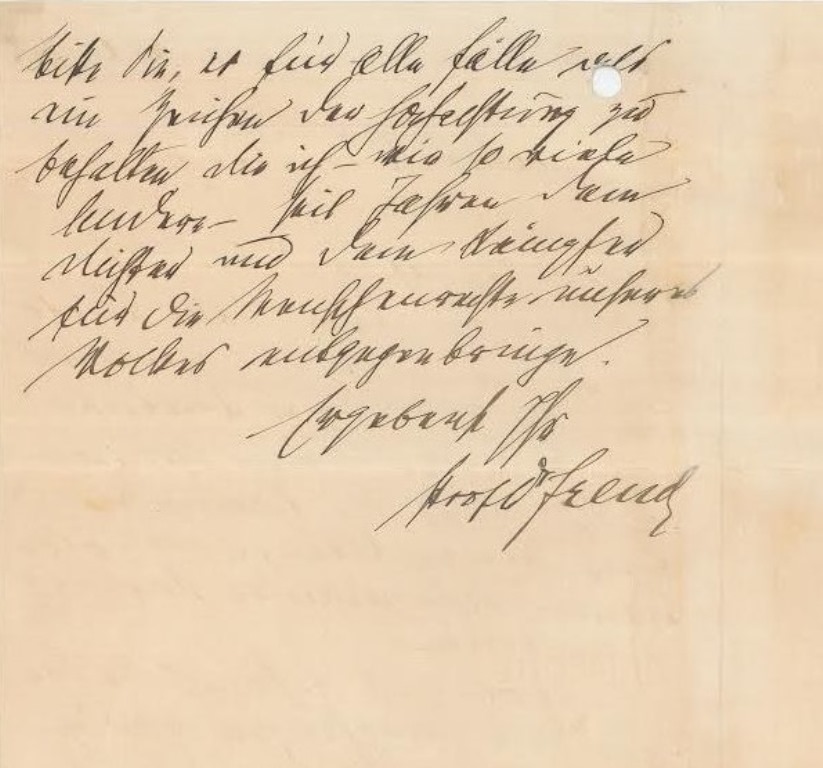 bitte Sie, es für alle Fälle als
ein Zeichen der Hochachtung zu
behalten die ich – wie so viele
Andere – seit Jahren dem
Dichter und dem Kämpfer
für die Menschenrechte unseres
Volkes entgegenbringe.
Ergebenst Ihr
Prof Dr